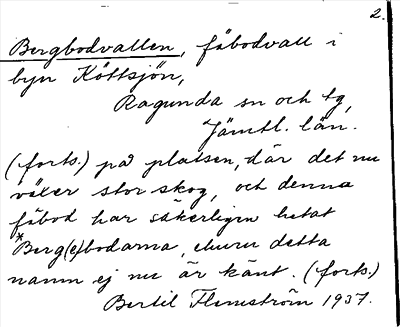 2.
Bergbodvallen, fäbodvall i
byn Köttsjön,
Ragunda sn och tg,
Jämtl. län.
(forts.) på platsen, där det nu
växer stor skog, och denna
fäbod har säkerligen hetat
*Berg(e)bodarna, ehuru detta
namn ej nu är känt. (forts.)
Bertil Flemström 1937.